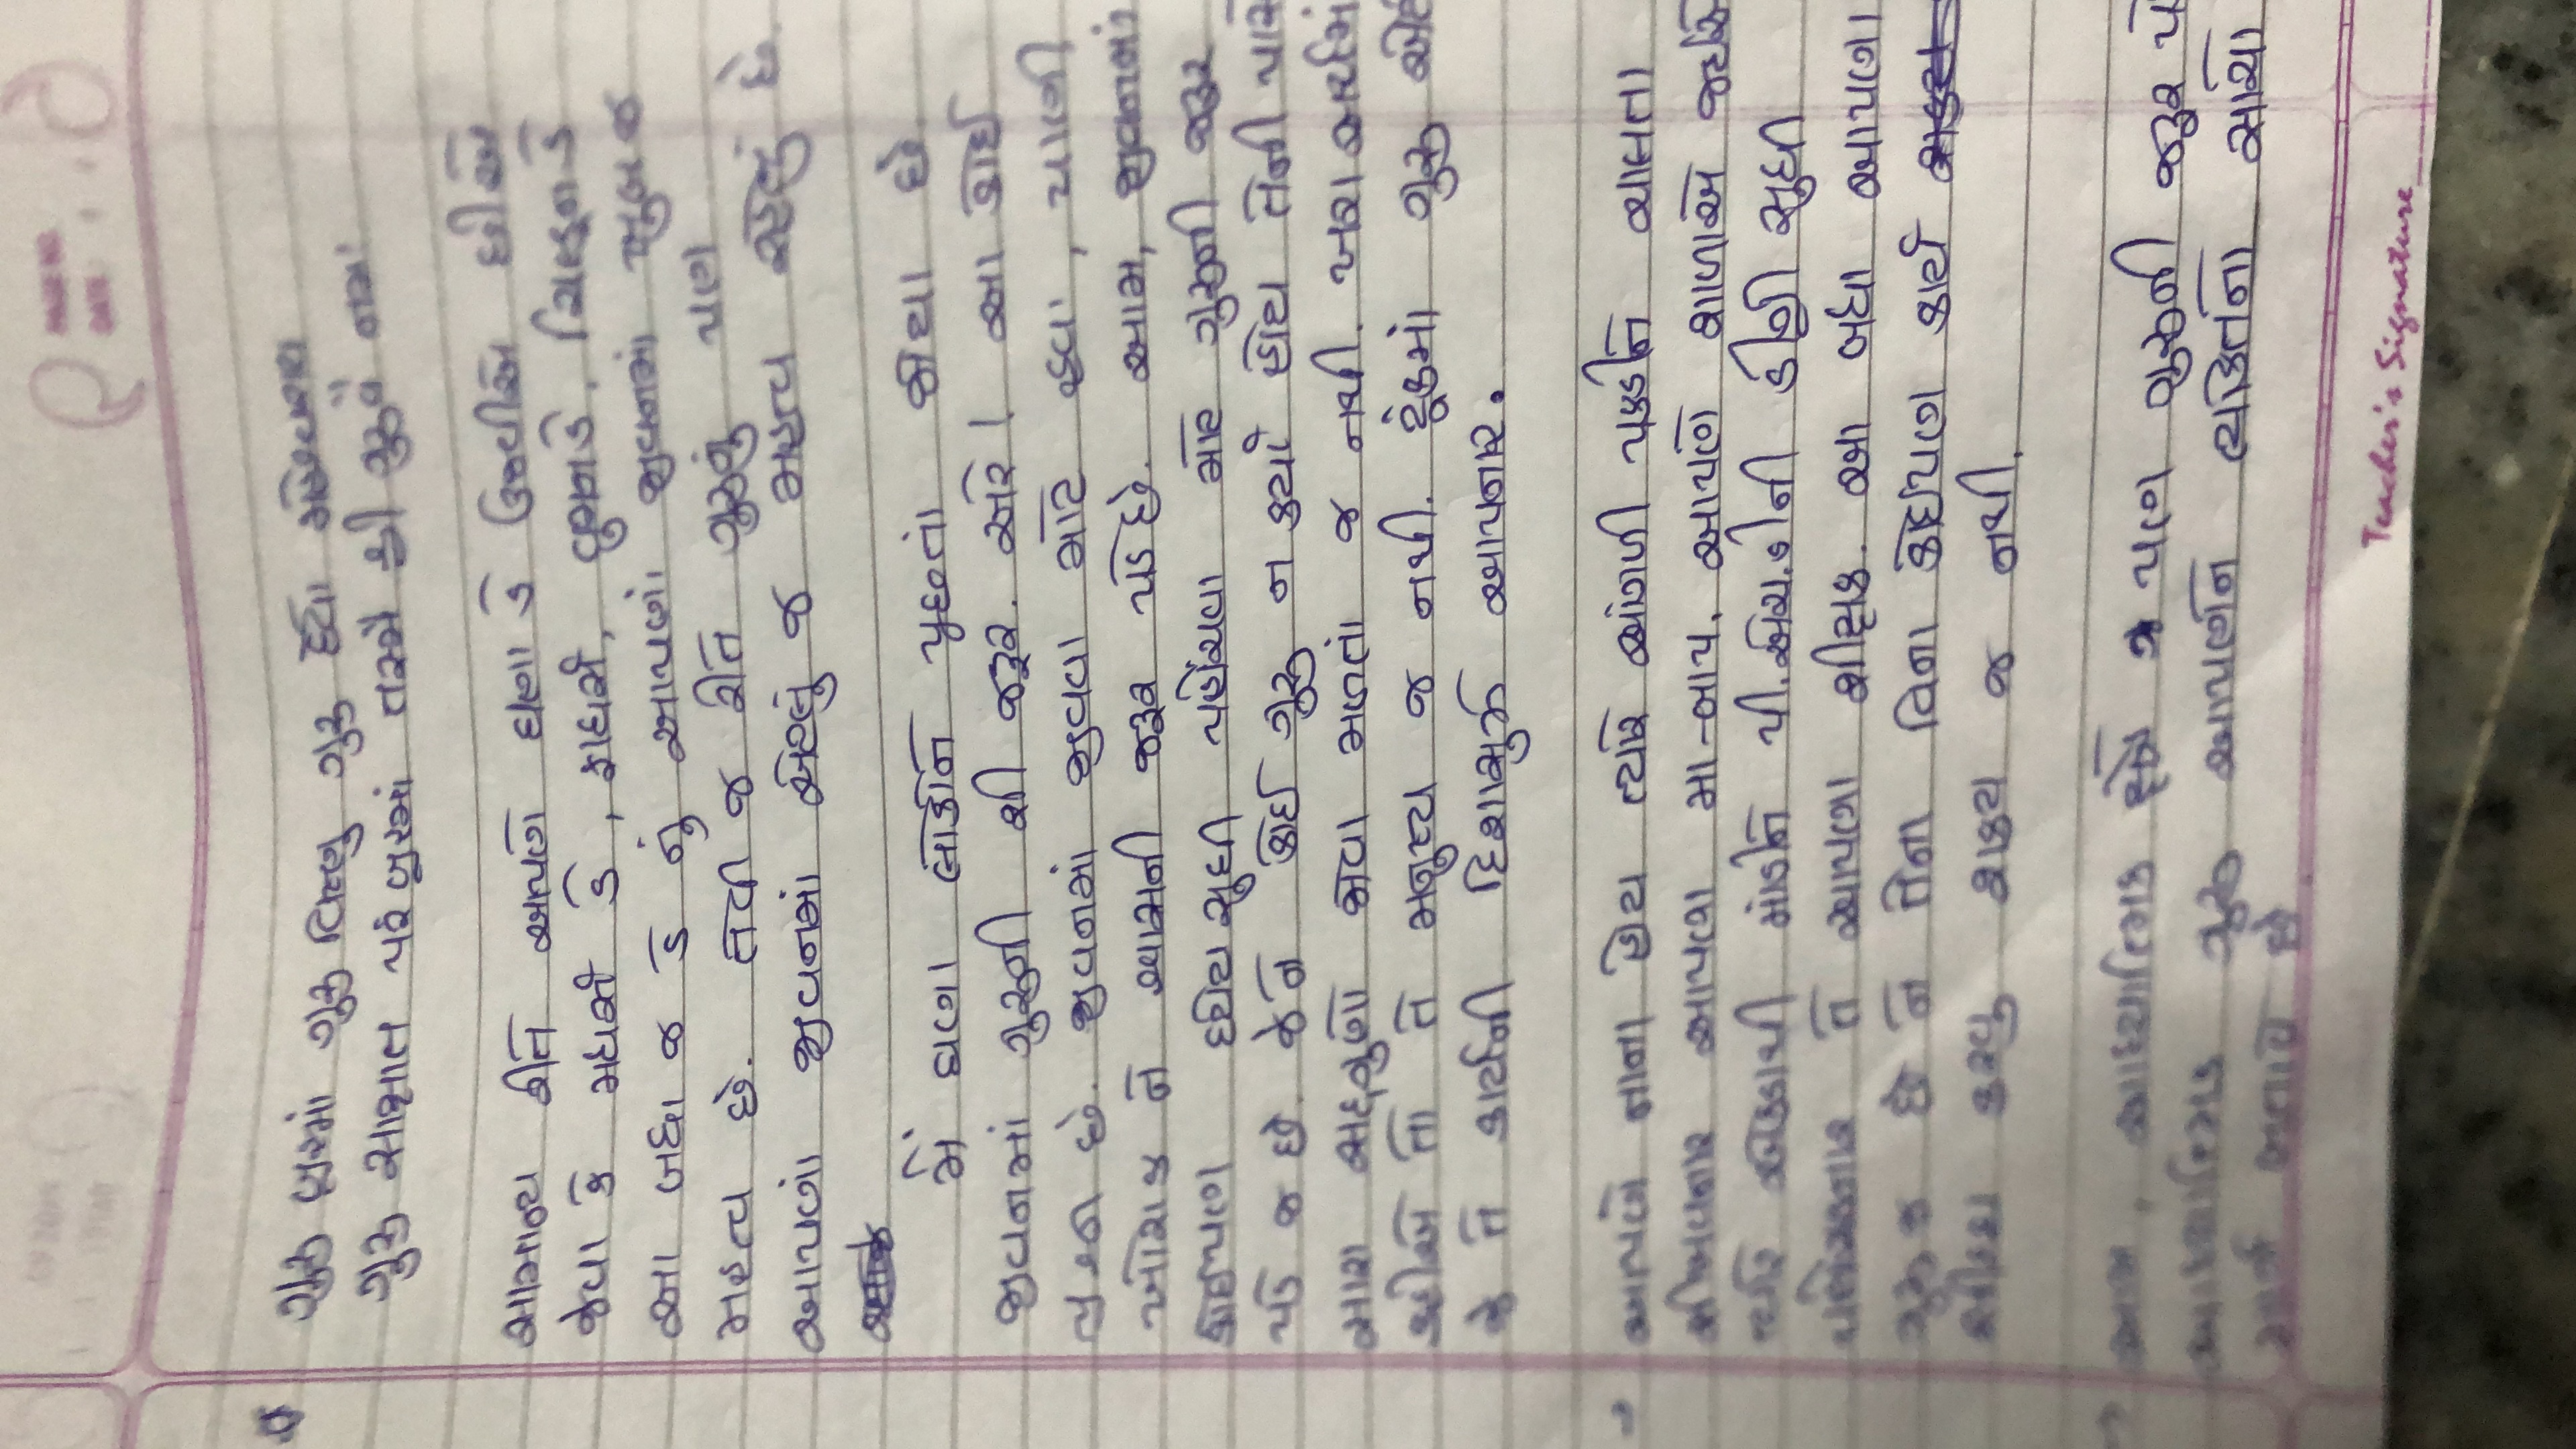 PAGE NO.
DATE
ગુરુ બ્રહમાં ગુરુ વિષ્ણુ ગુરુ દેવો મહેશ્વરાય
ગુરુ સાક્ષાત પરંબ્રહમાં તસ્મૈ શ્રી ગુરુવૈ નમઃ
સામાન્ય રીતે આપણે ઘણા ડે ઉજવીએ છીએ
જેવા કે મધર્સ ડે, ફાધર્સ, વુમનડે, ચિલ્ડ્રનડે
આ બધા જ ડે નું આપણાં જીવનમાં ખુબ જ
મહત્વ છે. તેવી જ રીતે ગુરુનું પણ
આપણાં જીવનમાં એટલું જ મહત્વ રહેલું છે.
મેં ઘણા લોકોને પૂછતાં જોયા છે
જીવનમાં ગુરુની શી જરૂર. અરે! આ કોઈ
પ્રશ્ન છે. જીવનમાં જીવવા માટે હવા, પાણી
ખોરાક ને શ્વાસની જરૂર પડે છે. આમ, જીવનમાં
કોઈપણ ધ્યેય સુધી પહોંચવા માટે ગુરુની જરૂર
પડે જ છે. જેને કોઈ ગુરુ ન કર્યો હોય તેની પાસે
સારા સદ્દગુણો જોવા મળતાં જ નથી. ખરા અર્થમાં
કહીએ તો તે મનુષ્ય જ નથી. ટૂંકમાં ગુરુ
જે તે કાર્યની દિશાસુઝ આપનાર.
આપણે નાના હોય ત્યારે આંગળી પકડીને ચાલતા
શીખવનાર આપણા મા-બાપ. આપણે શાળાએ જઈએ
ત્યારે એકડાથી માંડીને પી.એચ.ડીની ડીગ્રી સુધી
પહોંચાડનાર તે આપણા શીક્ષક. આ બધા આપણા
ગુરુ જ છે ને તેના વિના કોઈપણ કાર્ય
કરવુ શક્ય જ નથી.
આમ, આધ્યાત્મિક ક્ષેત્રે પણ ગુરુની જરૂર
આધ્યાત્મિક ગુરુ આપણને વ્યકિતનો સાચો
માર્ગ બતાવે છે.
Teacher's Signature